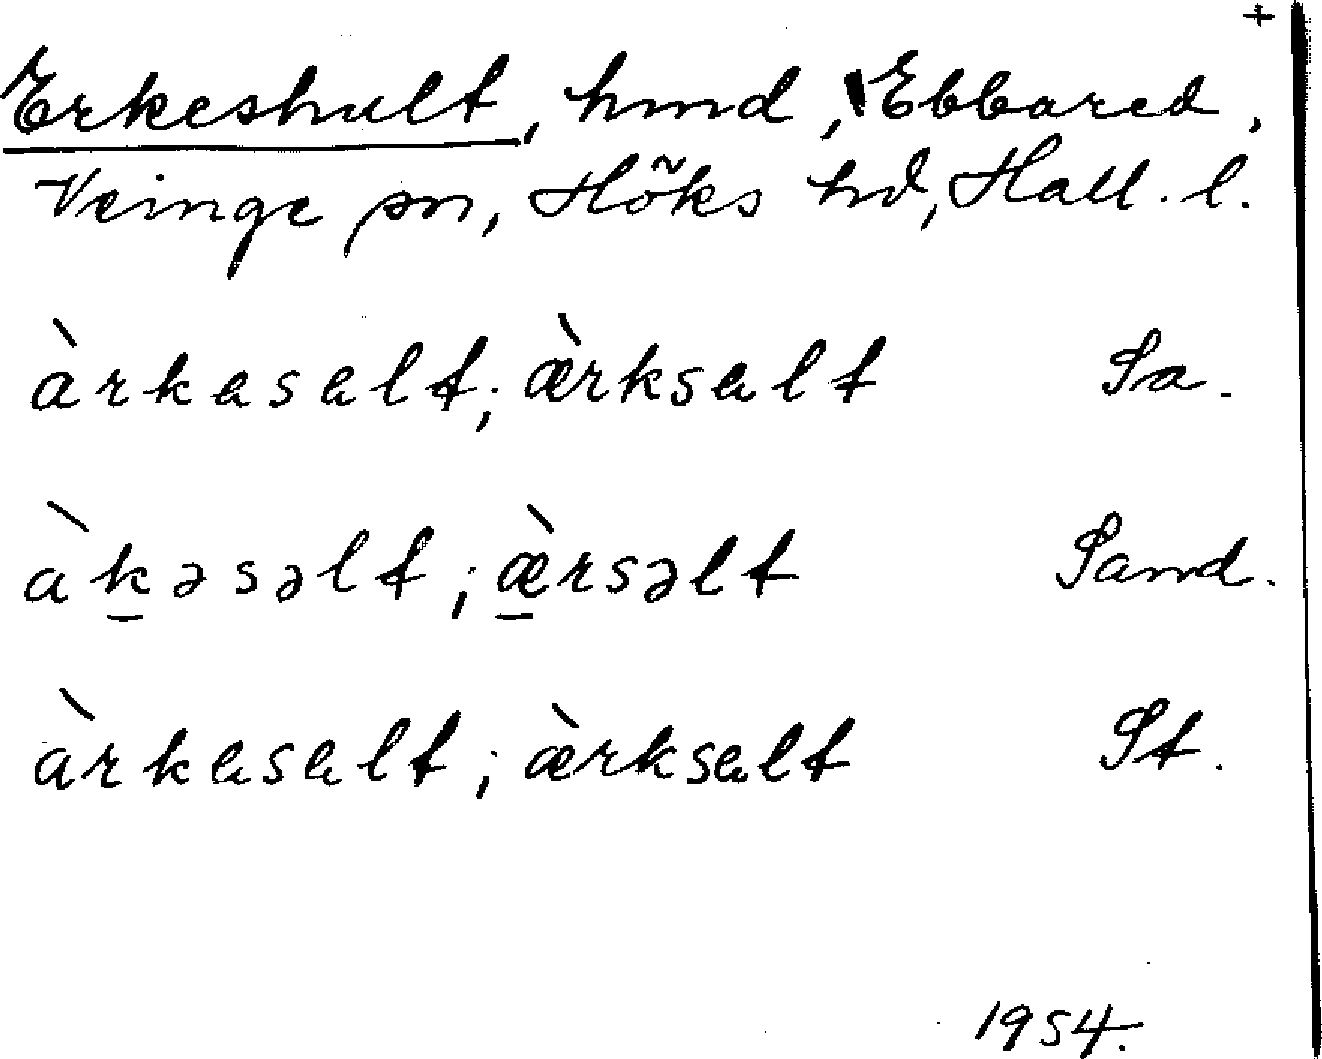 +
Erkeshult, hmd, Ebbared,
Veinge sn, Höks hd, Hall. l.
àrkasalt; æ̀rksalt Sa.
àk̲əsəlt; æ̲̀rsəlt Sand.
àrkasalt; æ̀rksalt St.
1954.